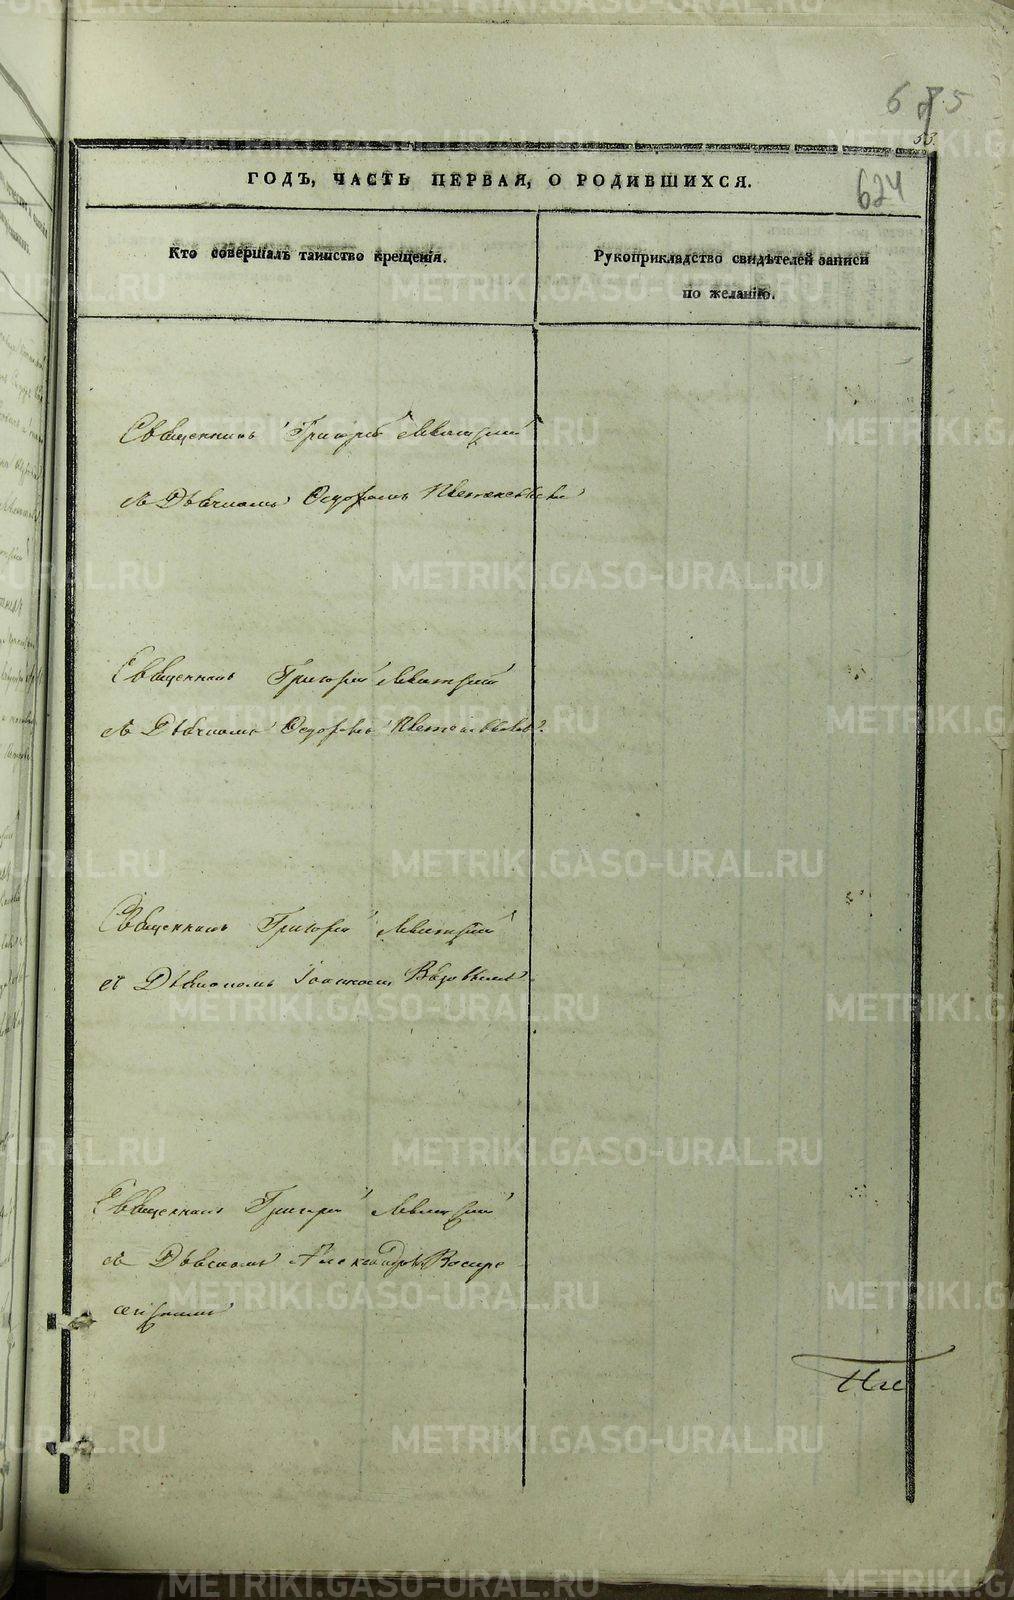 675
53.
624
ГОДЪ, ЧАСТЬ ПЕРВАЯ, О РОДИВШИХСЯ.
Кто совершалъ таинство крещенія.
Рукоприкладство свидѣтелей записи
по желанію.
Священникъ Григорій Левитскій
съ Дьячкомъ Ѳедоромъ
Священникъ Григорій Левитскій
съ Дьячкомъ Ѳедоромъ
Священникъ Григорій Левитскій
съ Дьякономъ Іоанномъ
Священникъ Григорій Левитскій
съ Александромъ Воскре
сенскимъ
METRIKI.GASO-URAL.RU